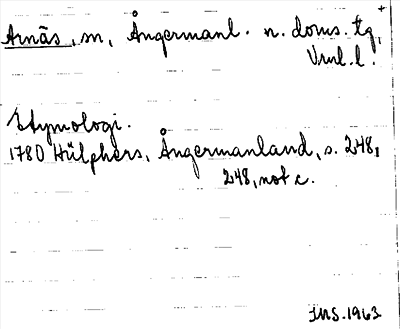 Arnäs, sn, Ångermanl. n. doms. tg,
Vrnl. l.
Etymologi.
1780 Hülphers, Ångermanland, s. 248,
248, not c.
JNS. 1963